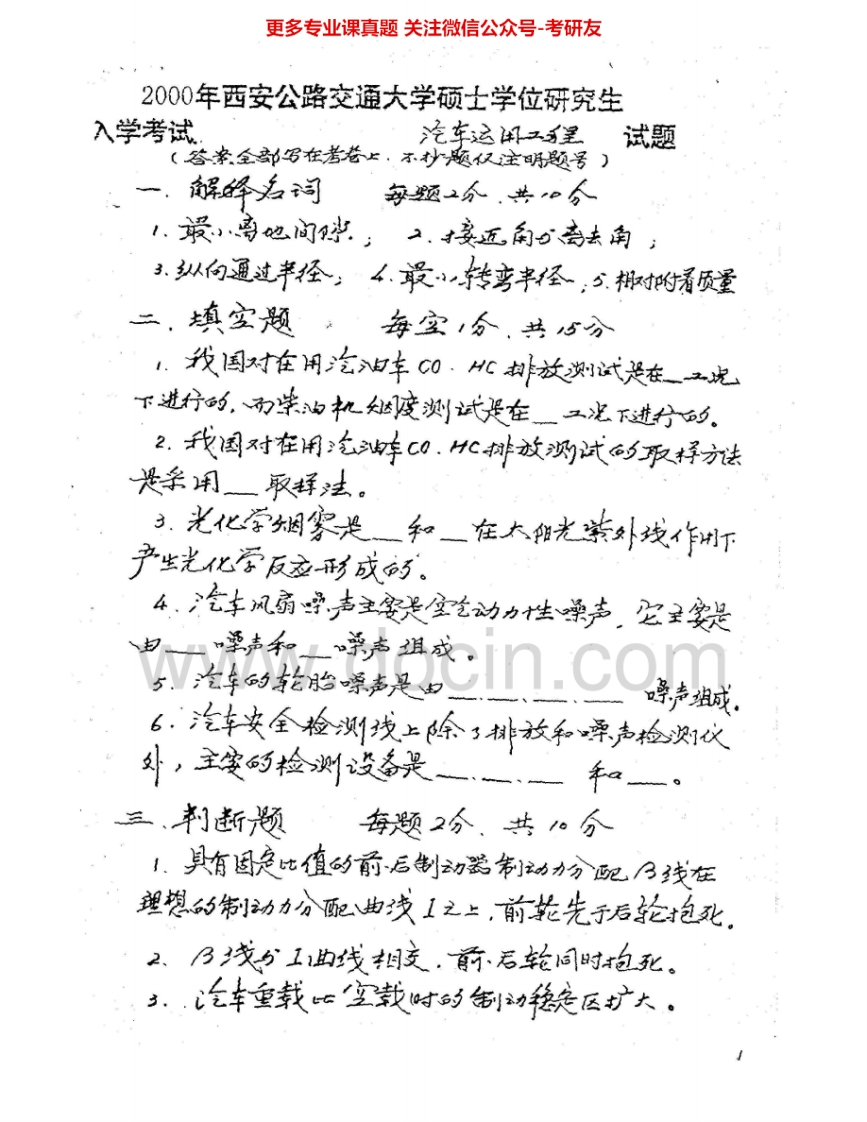 更多专业课真题 关注微信公众号-考研友
2000年西安公路交通大学硕士学位研究生
入学考试 汽车运用工程 试题
(答案全部写在考卷上，不抄题仅注明题号)
一、解释名词 每题2分，共10分
1. 最小离地间隙； 2. 接近角与离去角；
3. 纵向通过半径； 4. 最小转弯半径；5. 相对附着质量
二、填空题 每空1分，共15分
1. 我国对在用汽油车CO、HC排放测试是在__工况
下进行的，而柴油机烟度测试是在__工况下进行的。
2. 我国对在用汽油车CO、HC排放测试的取样方法
是采用__取样法。
3. 光化学烟雾是__和__在太阳光紫外线作用下
产生光化学反应形成的。
4. 汽车风扇噪声主要是空气动力性噪声，它主要是
由__噪声和__噪声组成。
5. 汽车的轮胎噪声是由__、__、__、__噪声组成。
6. 汽车安全检测线上除了排放和噪声检测仪
外，主要的检测设备是__、__、__和__。
三、判断题 每题2分，共10分
1. 具有固定比值的前、后制动器制动力分配β线在
理想的制动力分配曲线I之上，前轮先于后轮抱死。
2. β线与I曲线相交，前、后轮同时抱死。
3. 汽车重载比空载时的制动稳定区扩大。
1
www.docin.com